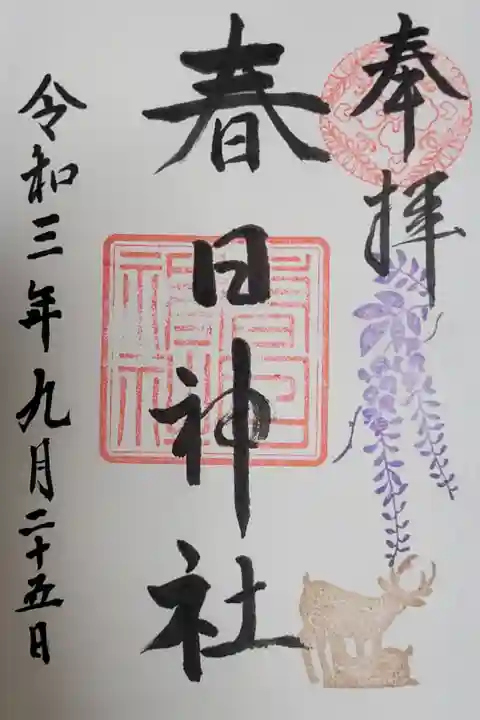 奉拝
春日神社
令和三年九月二十五日